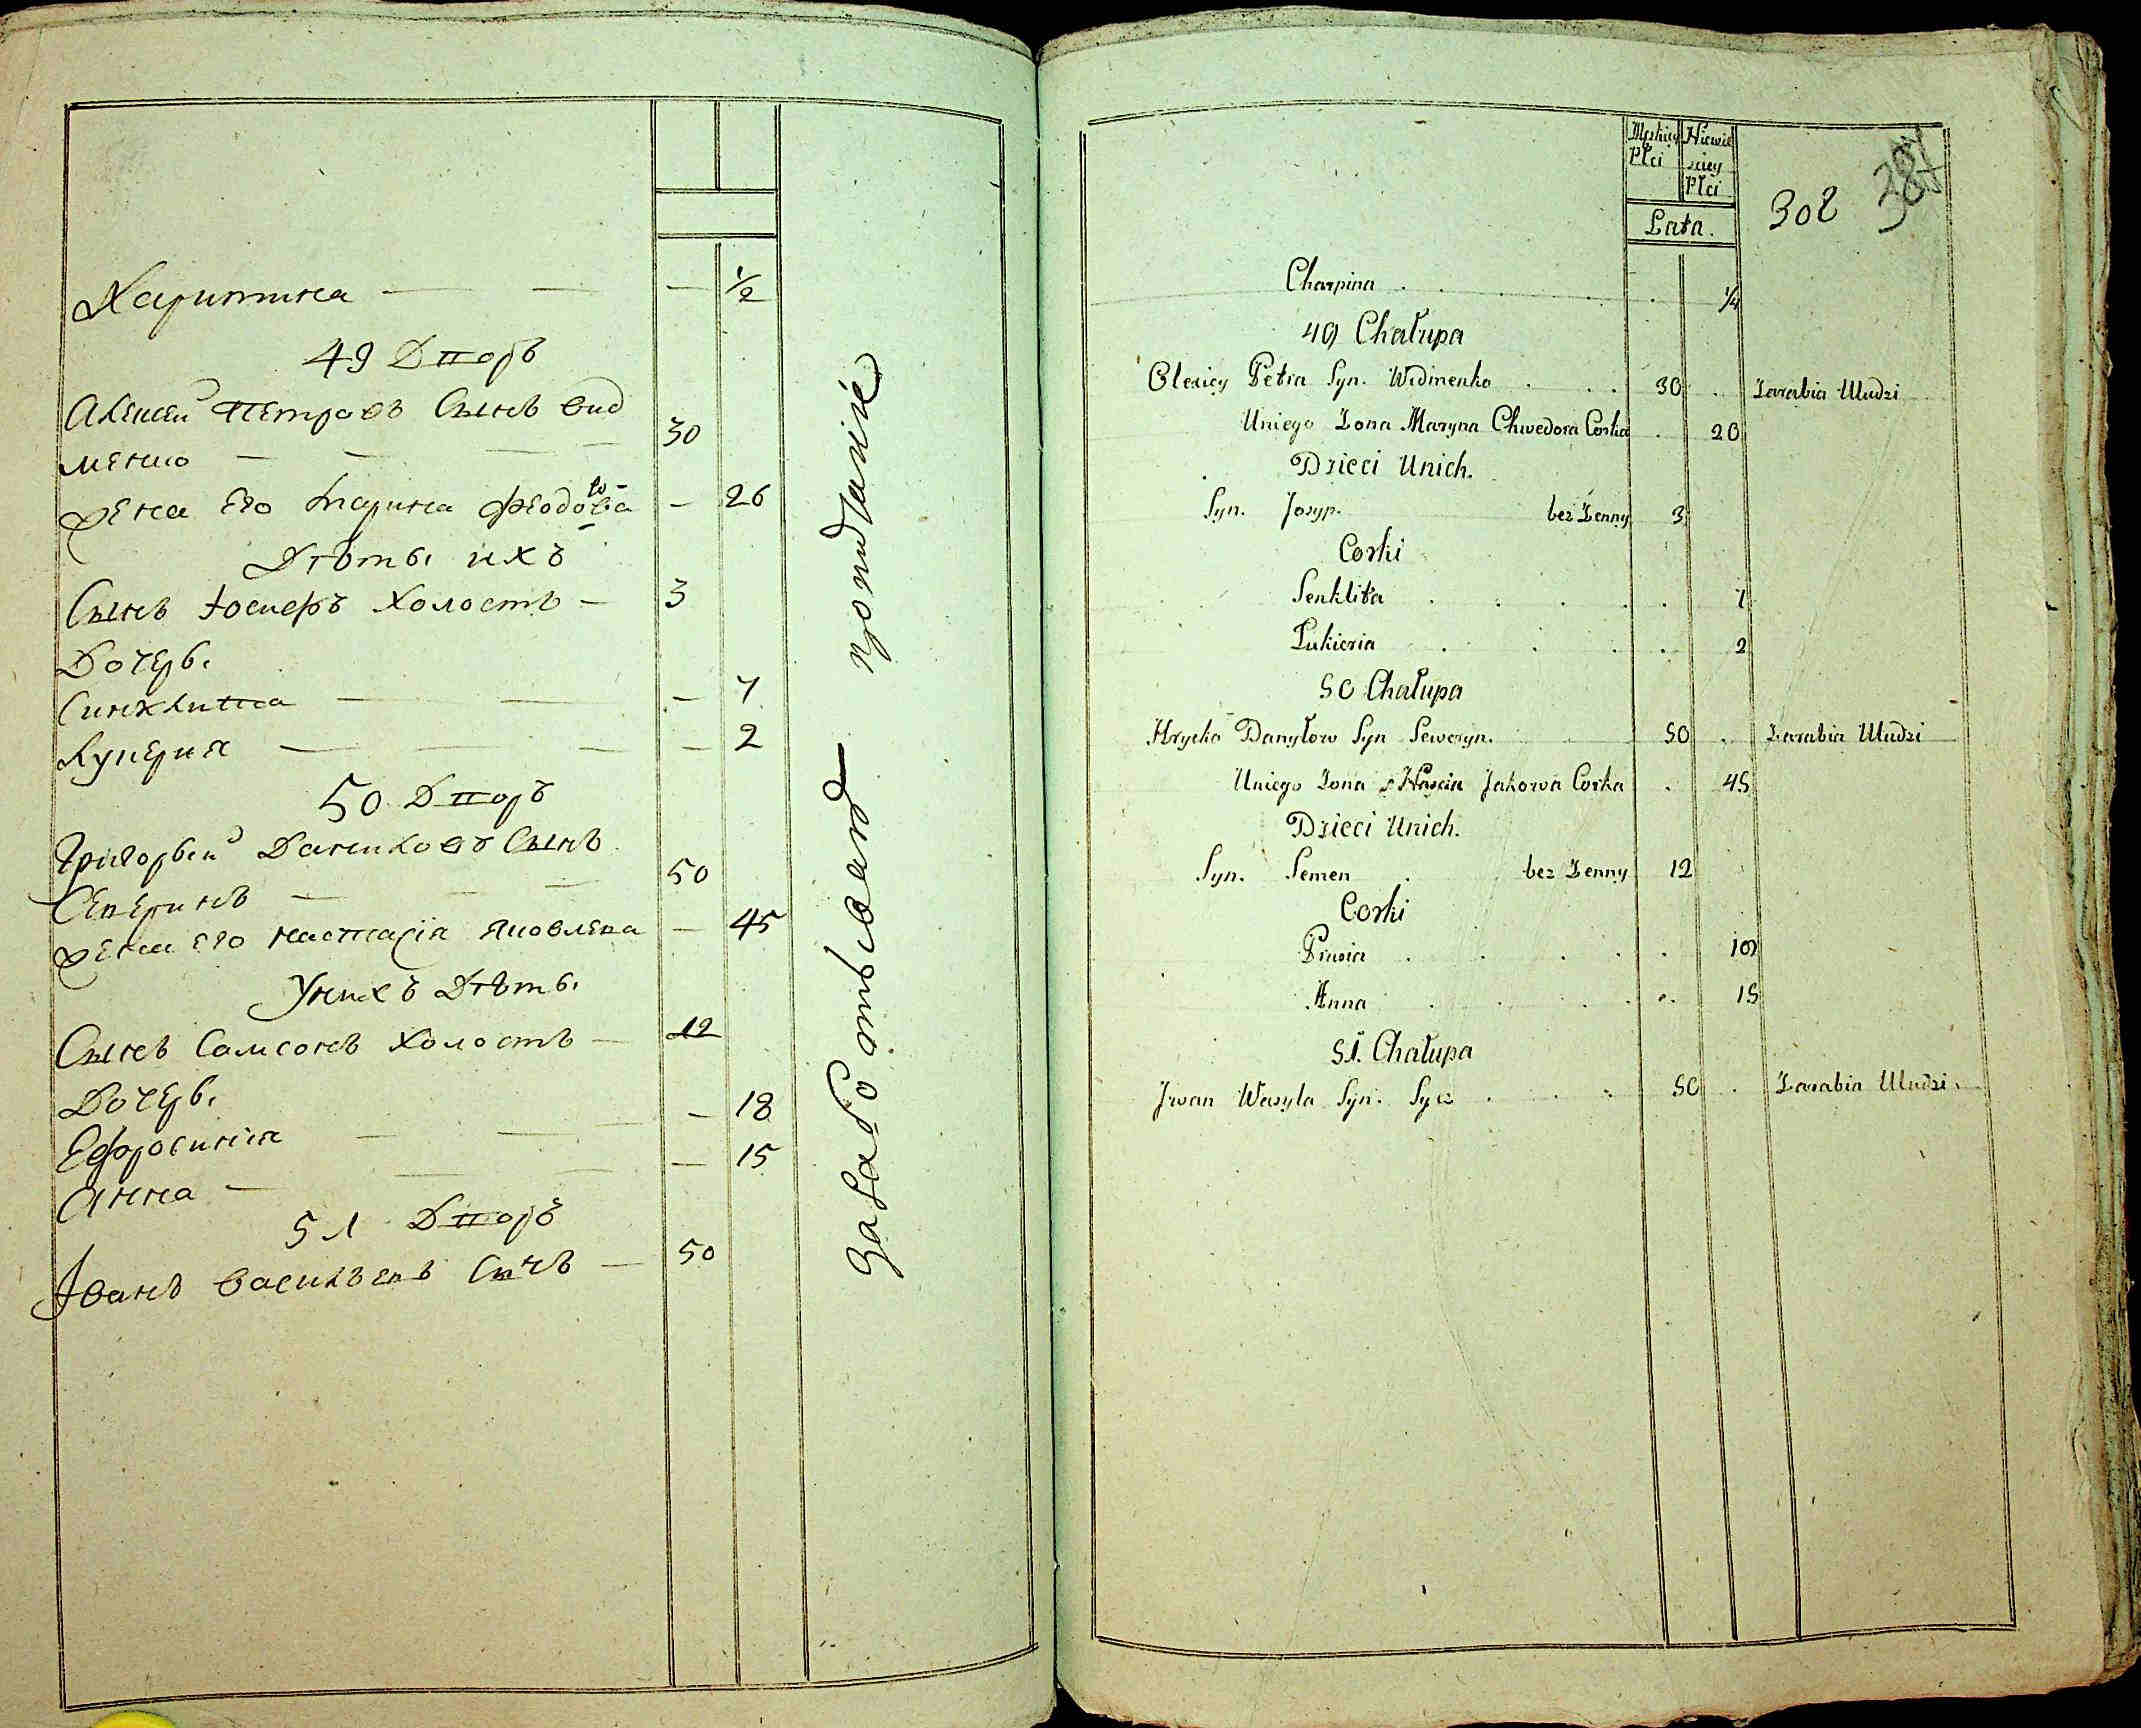 Харитина — — — ½
49 Дворъ
Алексей Петровъ Сынъ Вид
менко — — — 30
Жена Его Марина Феодо́ва — 26
ро
Дѣты ихъ
Сынъ Іосифъ Холостъ — 3
Дочеры
Синклитиа — — — 7
Лукерия — — — 2
50 Дворъ
Григорьей Даниловъ Сынъ
Северинъ — — — 50
Жена его настасія Яковлева — 45
Унихъ Дѣты
Сынъ Самсонъ Холостъ — 12
Дочеры
Ефросинія — — — 18
Анна — — — 15
51 Дворъ
Іванъ Васильевъ Сычъ — 50
Зарабо отываютъ пропитание
Męskiey Płci
Niewie
sciey
Płci
Lata.
302
387
Charpina . . . ¼
49 Chałupa
Olexiey Petra Syn. Widmenko . . 30 . Zarabia Uludzi
Uniego Zona Maryna Chwedora Corka . 20
Dzieci Unich.
Syn. Josyp. bez Zenny 3
Corki
Senklita . . . . 7
Lukieria . . . . 2
50 Chałupa
Hrycko Danyłow Syn Seweryn. 50 . Zarabia Uludzi
Uniego Zona Nascia Jakowa Corka . 45
Dzieci Unich.
Syn. Semen . bez Zenny 12
Corki
Prusia . . . . 18
Anna . . . . 15
51. Chałupa
Jwan Wasyla Syn. Sycz . . . 50 . Zarabia Uludzi.